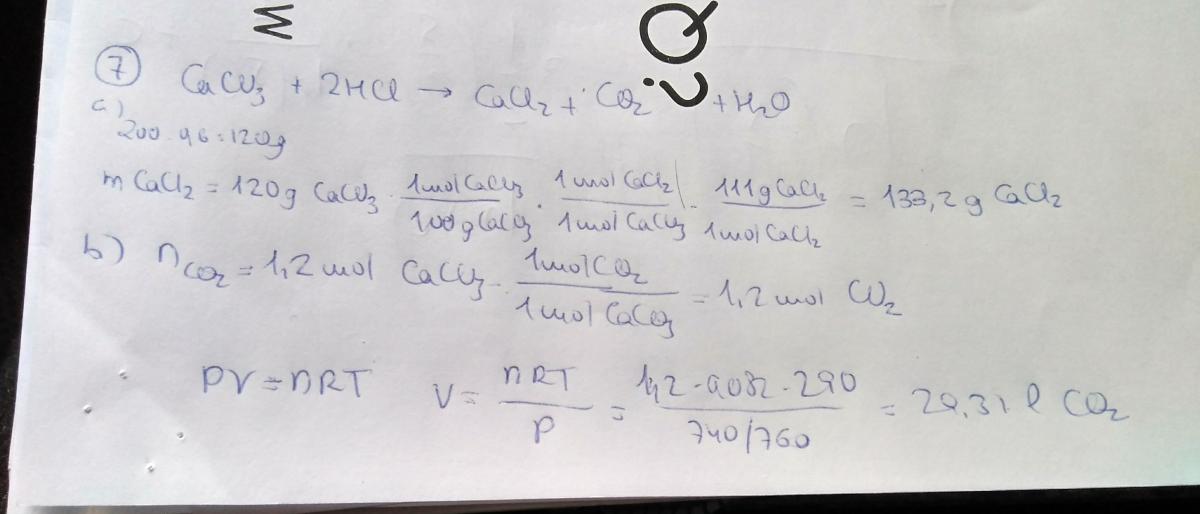 M
¿Q
7 CaCO3 + 2HCl → CaCl2 + CO2 + H2O
a)
200 · 0,6 = 120g
m CaCl2 = 120g CaCO3 · 1mol CaCO3 / 100g CaCO3 · 1mol CaCl2 / 1mol CaCO3 · 111g CaCl2 / 1mol CaCl2 = 133,2g CaCl2
b) nCO2 = 1,2 mol CaCO3 · 1mol CO2 / 1mol CaCO3 = 1,2 mol CO2
PV = nRT V = nRT / P = 1,2 · 0,082 · 290 / 740/760 = 29,31 l CO2